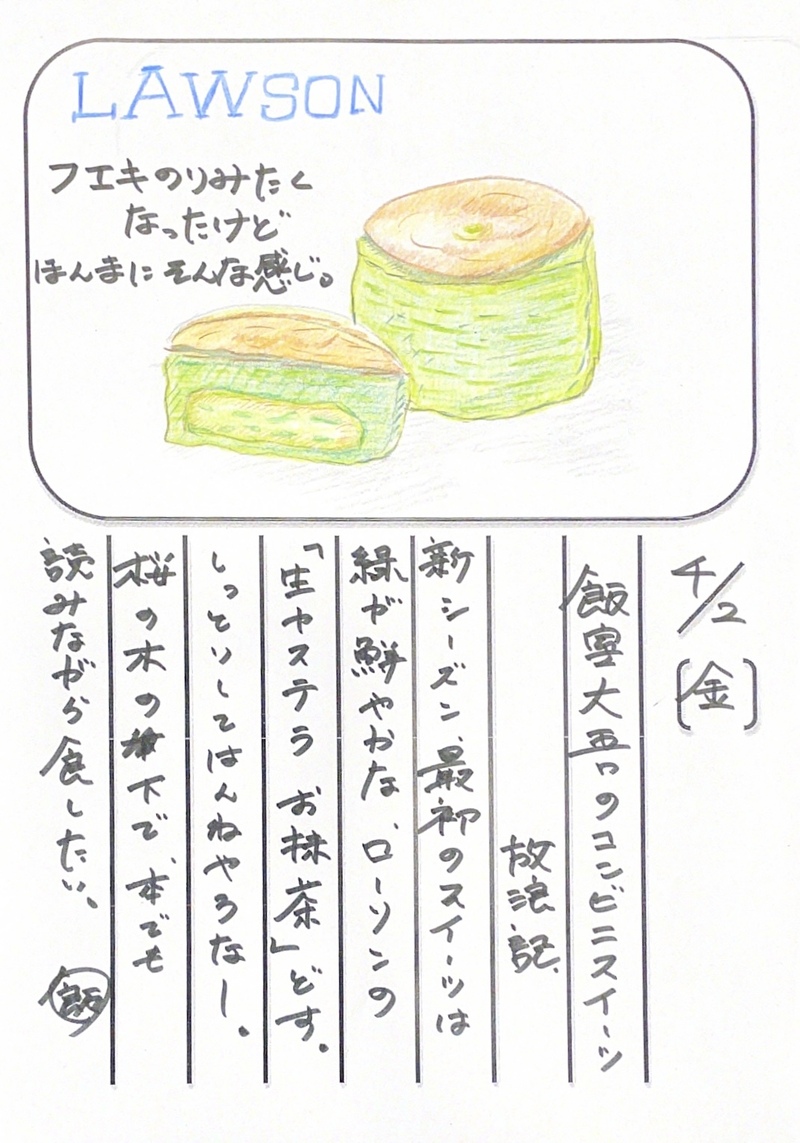 LAWSON
フエキのりみたく
なったけど
ほんまにそんな感じ。
4/2
[金]
飯室大吾のコンビニスイーツ
放浪記
新シーズン、最初のスイーツは
緑が鮮やかな、ローソンの
「生カステラ お抹茶」どす。
しっとりしてはんねやろなー。
桜の木の下で、本でも
読みながら食したい。
飯